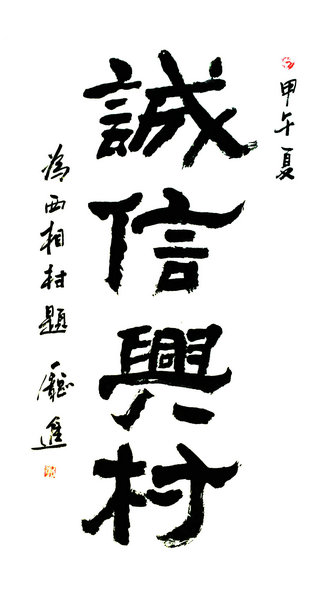 甲午夏
誠信興村
為西相村題
進